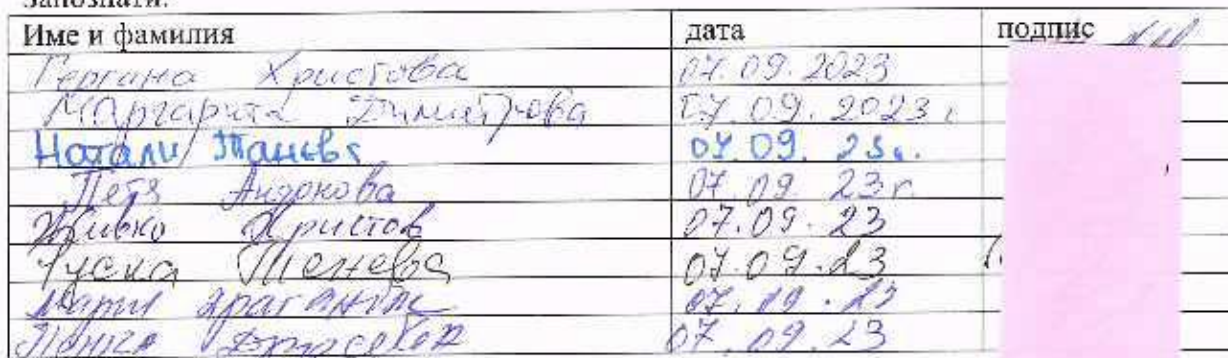 Запознати:
Име и фамилия дата подпис
Гергана Христова 07.09.2023
Маргарита Димитрова 07.09.2023 г
Натали Танева 07.09.23г.
Петя Андонова 07.09.23г.
Живко Христов 07.09.23
Руска Тенева 07.09.23
07.09.23
Пенка 07.09.23